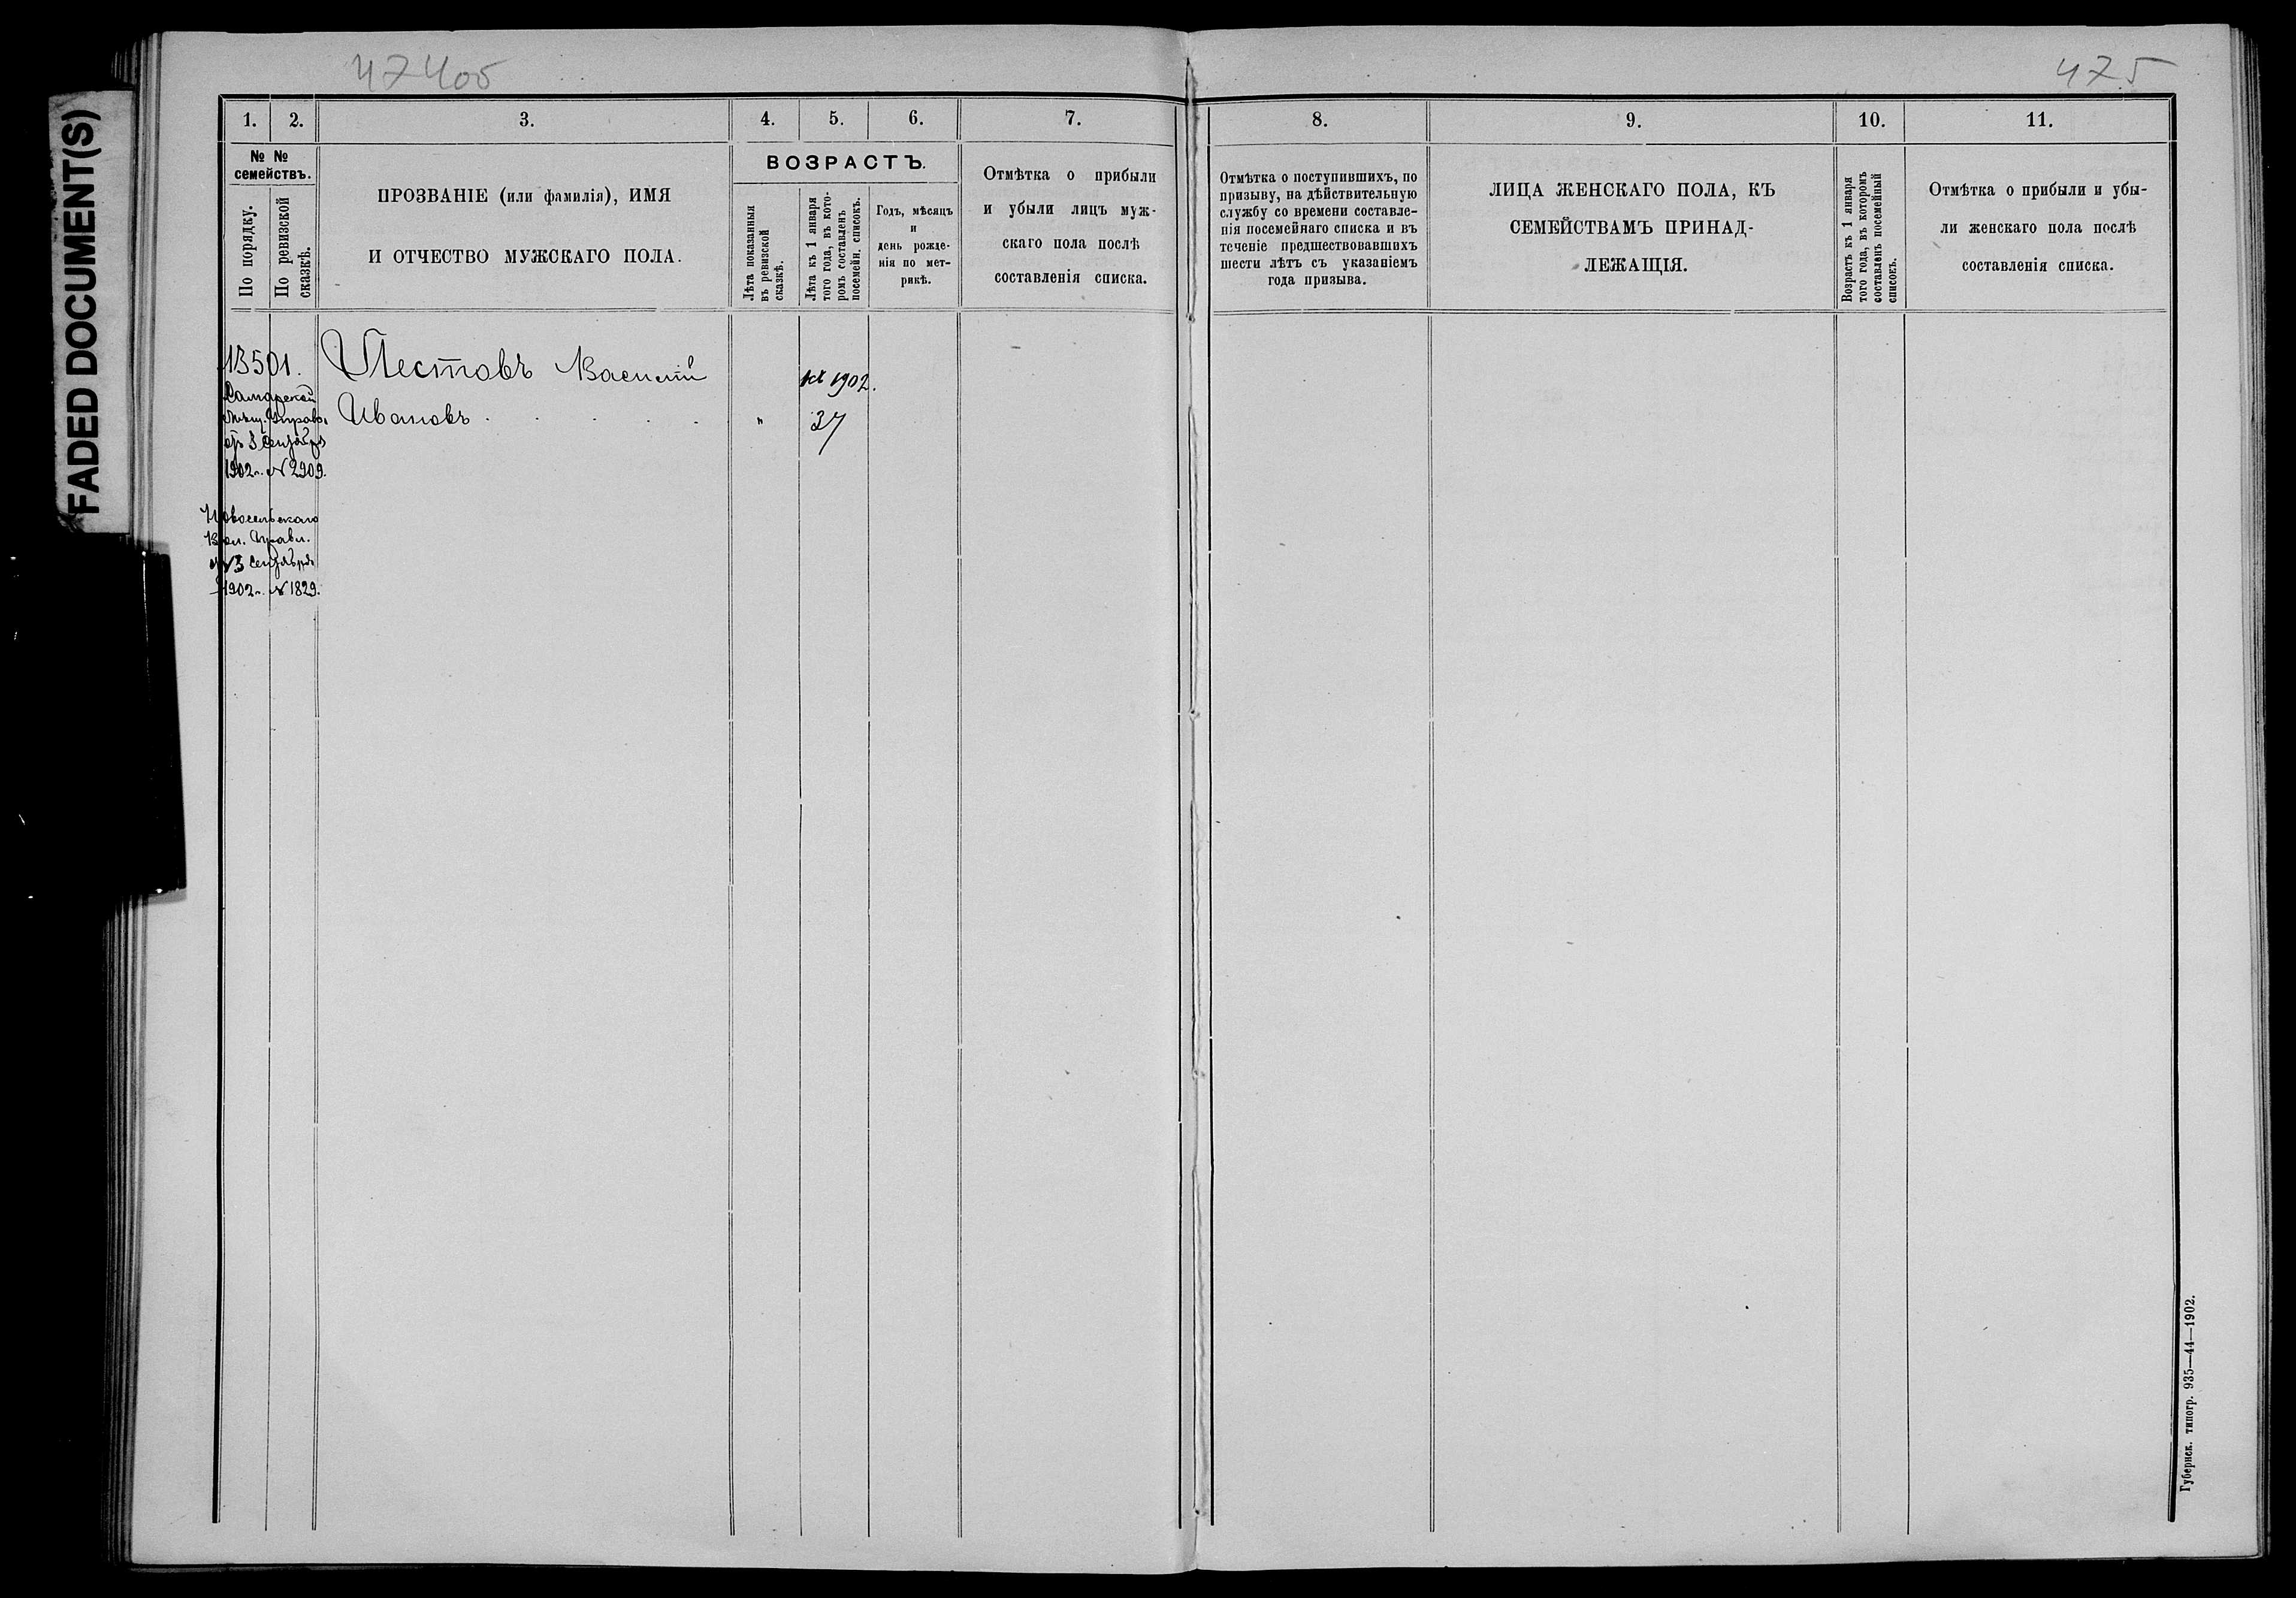 FADED DOCUMENT(S)
474об
475
1. 2. 3. 4. 5. 6. 7.
№ №
семействъ.
По порядку.
По ревизской
сказкѣ.
ПРОЗВАНІЕ (или фамилія), ИМЯ
И ОТЧЕСТВО МУЖСКАГО ПОЛА.
ВОЗРАСТЪ.
Лѣта показанныя
въ ревизской
сказкѣ.
Лѣта къ 1 января
того года, въ кото-
ромъ составленъ
посемейн. списокъ.
Годъ, мѣсяцъ
и
день рожде-
нія по мет-
рикѣ.
Отмѣтка о прибыли
и убыли лицъ муж-
скаго пола послѣ
составленія списка.
8. 9. 10. 11.
Отмѣтка о поступившихъ, по
призыву, на дѣйствительную
службу со времени составле-
нія посемейнаго списка и въ
теченіе предшествовавшихъ
шести лѣтъ съ указаніемъ
года призыва.
ЛИЦА ЖЕНСКАГО ПОЛА, КЪ
СЕМЕЙСТВАМЪ ПРИНАД-
ЛЕЖАЩІЯ.
Возрастъ къ 1 января
того года, въ которомъ
составленъ посемейный
списокъ.
Отмѣтка о прибыли и убы-
ли женскаго пола послѣ
составленія списка.
13501. Пестовъ Василій
къ 1902.
Ивановъ . . . . . " 37
Самарской
Мѣщ. Управы
отъ 3 Сентября
1902 г. № 2909.
Новосельскаго
Вол. Правл.
3 Сентября
1902 г. № 1829.
Губернск. типогр. 935—44—1902.